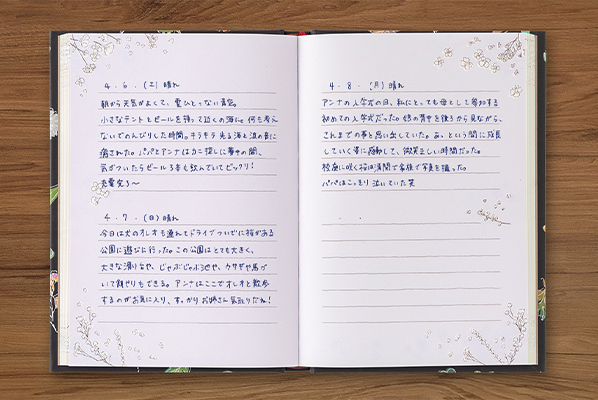 4.6.(土)晴れ
朝から天気がよくて、雲ひとつない青空。
小さなテントとビールを持って近くの海に。何も考え
ないでのんびりした時間。キラキラ光る海と波の音に
癒された。パパとアンナはカニ探しに夢中の間、
気がついたらビール3本も飲んでいてビックリ!
充電完了〜
4.7.(日)晴れ
今日は犬のオレオも連れてドライブついでに桜がある
公園に遊びに行った。この公園はとても大きく、
大きな滑り台や、じゃぶじゃぶ池や、ウサギや馬が
いて餌やりもできる。アンナはここでオレオと散歩
するのがお気に入り、すっかりお姉さん気取りだね!
4.8.(月)晴れ
アンナの入学式の日、私にとっても母として参加する
初めての入学式だった。娘の背中を後ろから見ながら、
これまでの事を思い出していた。あっという間に成長
していく姿に感動して、微笑ましい時間だった。
校庭に咲く桜は満開で家族で写真を撮った。
パパはこっそり泣いていた笑